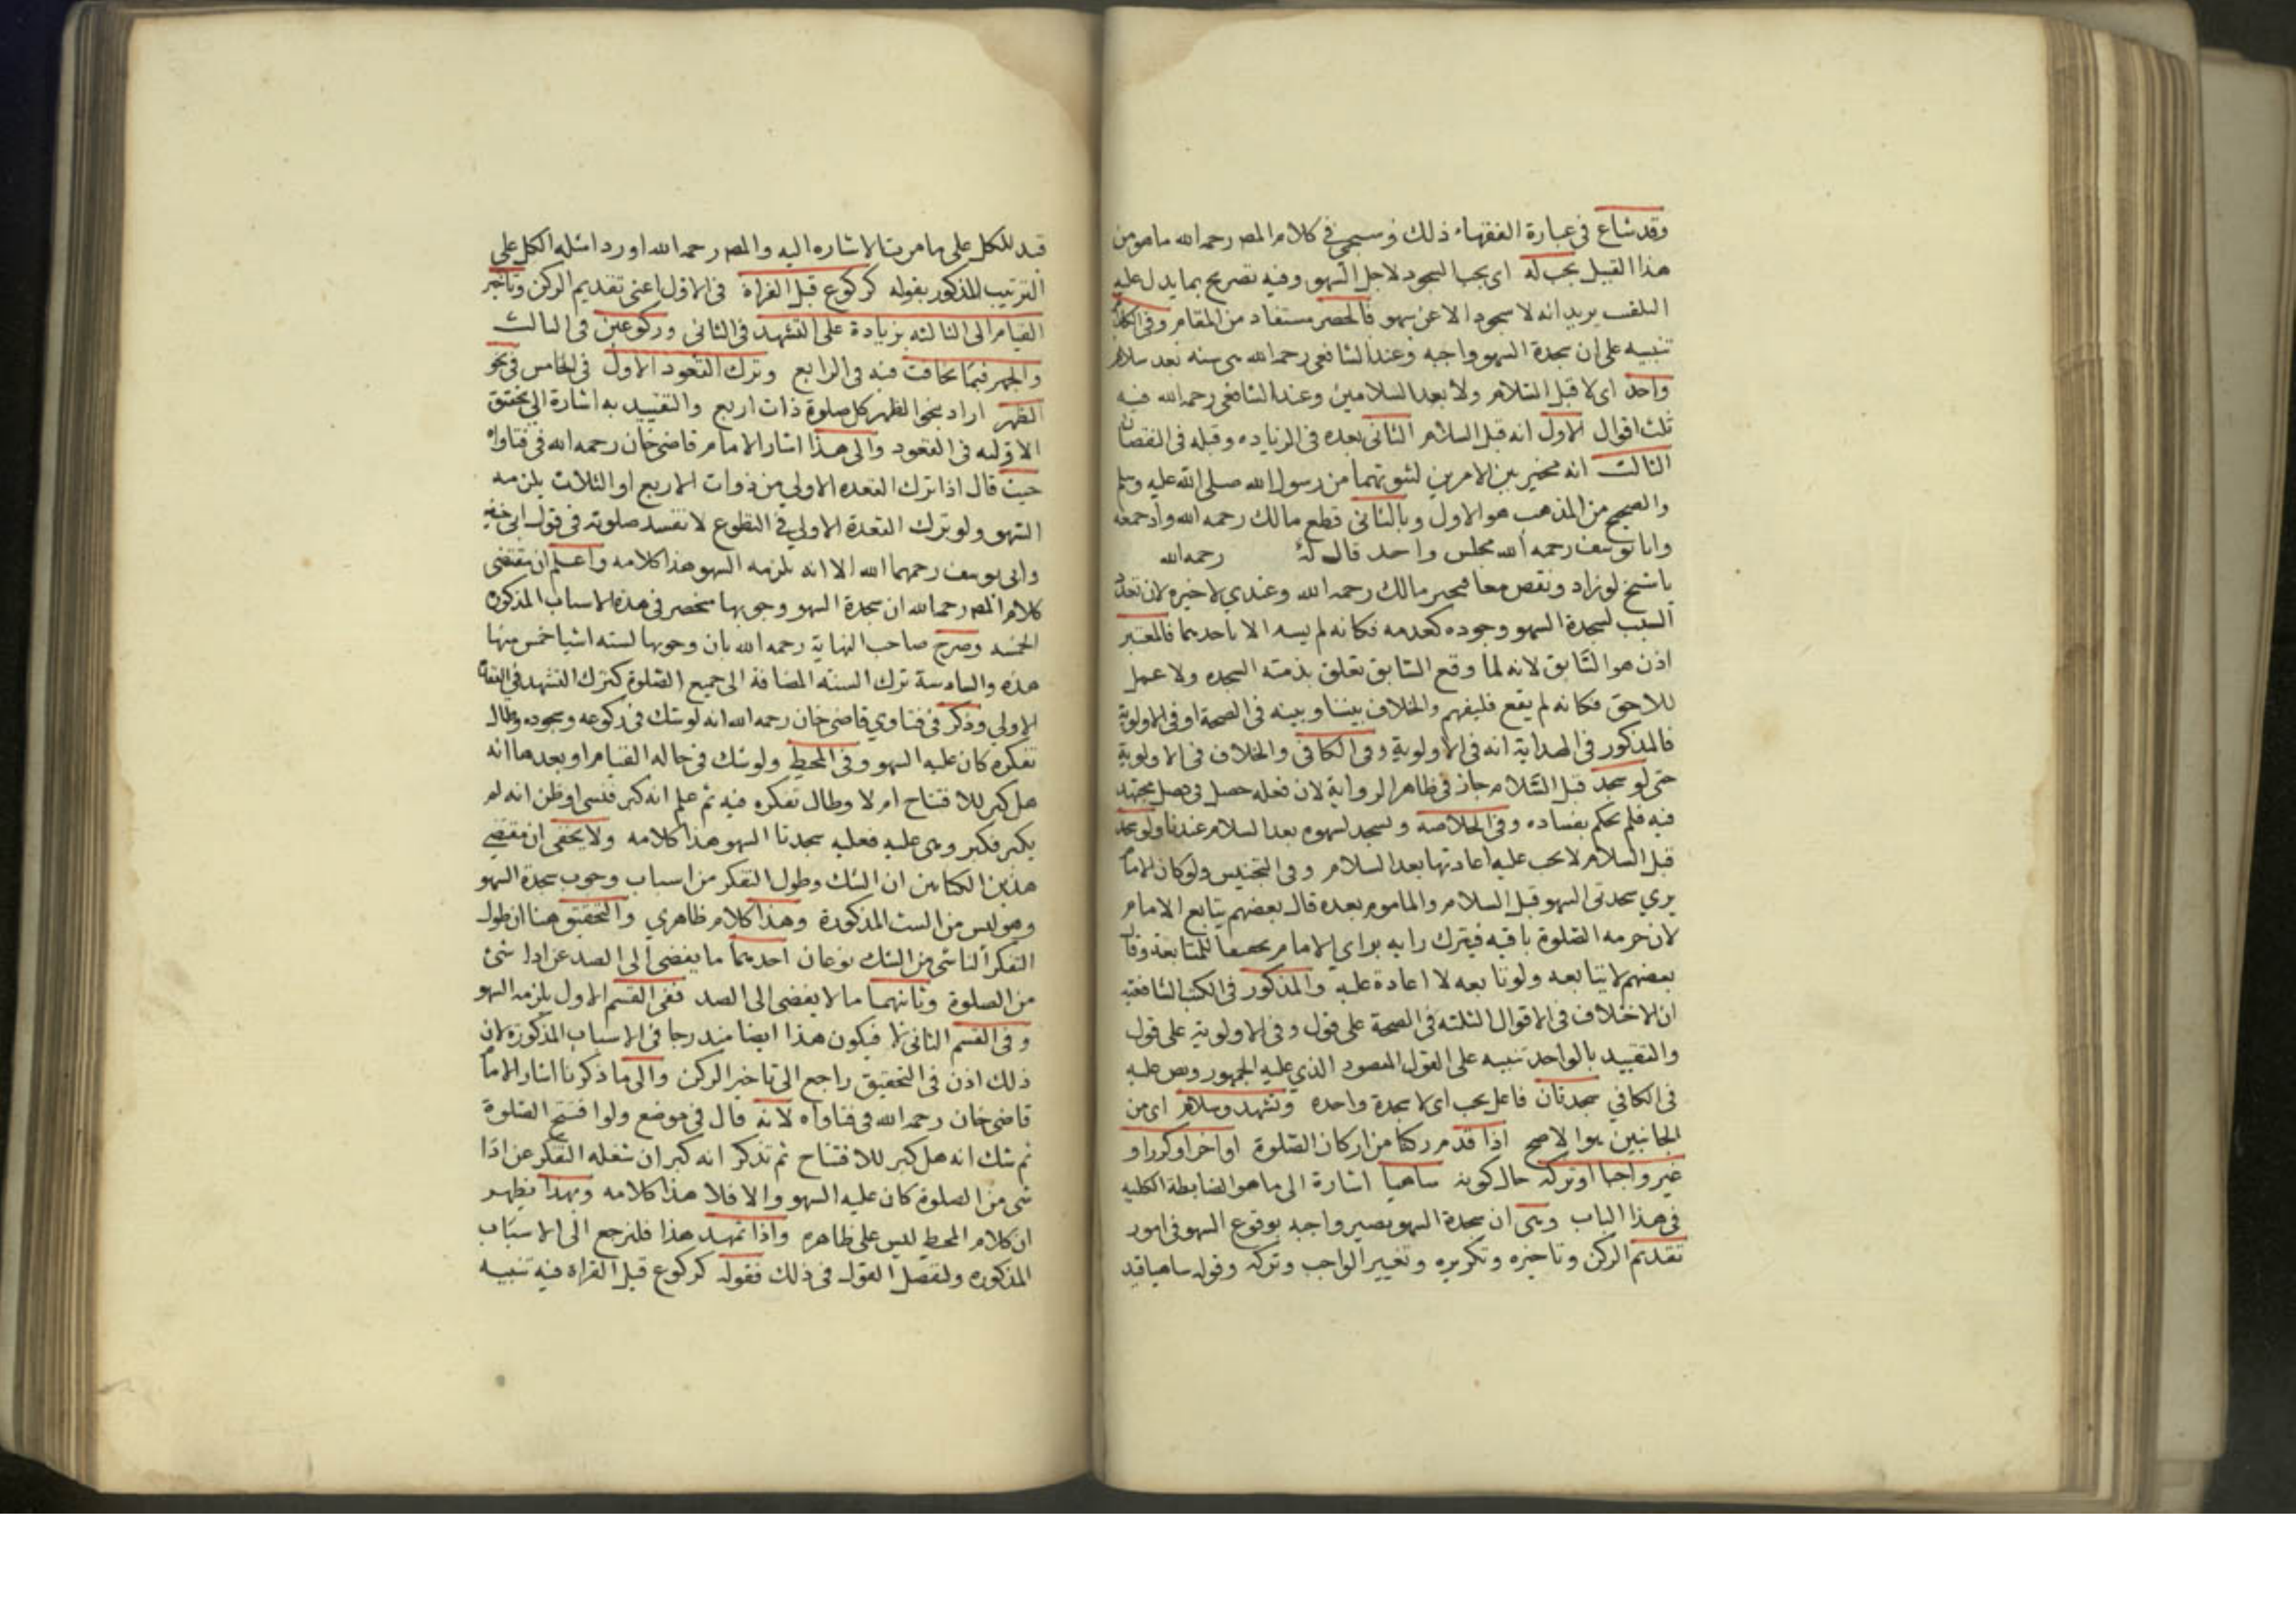 وقد شاع فى عبارة الفقهاء ذلك وسيجئ فى كلام المص رحمه الله ما هو من
هذا القبيل يجب له اى يجب السجود لاجل السهو وفيه تصريح بما يدل عليه
اللقب يريد انه لا سجود الا عن سهو فالحصر مستفاد من المقام وفى الكل
تنبيه على ان سجدة السهو واجبه وعند الشافعى رحمه الله هى سنه بعد سلام
واحد اى لا قبل السلام ولا بعد السلامين وعند الشافعى رحمه الله فيه
ثلث اقوال الاول انه قبل السلام الثانى بعده فى الزياده وقبله فى النقصان
الثالث انه مخير بين الامرين لثبوتهما من رسول الله صلى الله عليه وسلم
والصحيح من المذهب هو الاول وبالثانى قطع مالك رحمه الله واذ جمعه
وابا يوسف رحمه الله مجلس واحد قال له رحمه الله
يا شيخ لو زاد ونقص معا فتحير مالك رحمه الله وعندي لا خيره لان تعدد
السبب لسجدة السهو وجوده كعدمه فكانه لم يسه الا باحديهما فالمعتبر
اذن هو السابق لانه لما وقع السابق تعلق بذمته السجده ولا عمل
للاحق فكانه لم يقع فليفهم والخلاف بيننا وبينه فى الصحة او فى الاولوية
فالمذكور فى الهداية انه فى الاولوية وفى الكافى والخلاف فى الاولوية
حتى لو سجد قبل السلام جاز فى ظاهر الرواية لان فعله حصل فى فصل مجتهد
فيه فلم يحكم بفساده وفى الخلاصه ولسجد لسهوه بعد السلام عندنا ولو سجد
قبل السلام لا يجب عليه اعادتها بعد السلام وفى التجنيس ولو كان الاما
يري سجدتى السهو قبل السلام والماموم بعده قال بعضهم يتابع الامام
لان حرمه الصلوة باقيه فيترك رايه براي الامام تحقيقا للمتابعة وقال
بعضهم لا يتابعه ولو تابعه لا اعادة عليه والمذكور فى الكتب الشافعية
ان الاختلاف فى الاقوال الثلثه فى الصحة على قول وفى الاولوية على قول
والتقييد بالواحد تنبيه على القول المنصور الذي عليه الجمهور ونص عليه
فى الكافي سجدتان فاعل يجب اى لا سجدة واحده وتشهد وسلام اى من
الجانبين هو الاصح اذا قدم ركنا من اركان الصلوة او اخر او كرر او
غير واجبا او تركه حال كونه ساهيا اشارة الى ما هو الضابطة الكليه
فى هذا الباب وهى ان سجدة السهو يصير واجبه بوقوع السهو فى امور
تقديم الركن وتاخيره وتكريره وتغيير الواجب وتركه وقوله ساهيا قيد
قيد للكل على ما مرت الاشاره اليه والمص رحمه الله اورد امثله الكل على
الترتيب المذكور بقوله كركوع قبل القراة فى الاول اعنى تقديم الركن وتاخير
القيام الى الثالثه بزيادة على التشهد فى الثانى وركوعين فى الثالث
والجهر فيما يخافت فيه فى الرابع وترك القعود الاول فى الخامس فى نحو
الظهر اراد بنحو الظهر كل صلوة ذات اربع والتقييد به اشارة الى تحقق
الاوليه فى القعود والى هذا اشار الامام قاضى خان رحمه الله فى فتاواه
حيث قال اذا ترك القعده الاولى من ذوات الاربع او الثلاث يلزمه
السهو ولو ترك القعدة الاولى فى التطوع لا تفسد صلوته فى قول ابى حنيفه
وابى يوسف رحمهما الله الا انه يلزمه السهو هذا كلامه واعلم ان مقتضى
كلام المص رحمه الله ان سجدة السهو وجوبها منحصر فى هذه الاسباب المذكوره
الخمسه وصرح صاحب النهاية رحمه الله بان وجوبها لسته اشيا خمس منها
هذه والسادسة ترك السنه المضافة الى جميع الصلوة كترك التشهد فى القعدة
الاولى وذكر فى فتاوي قاضى خان رحمه الله انه لو شك فى ركوعه وسجوده وطال
تفكره كان عليه السهو وفى المحيط ولو شك فى حاله القيام او بعدها انه
هل كبر للافتتاح ام لا وطال تفكره فيه ثم علم انه كبر فنسى او ظن انه لم
يكبر فكبر وبنى عليه فعليه سجدتا السهو هذا كلامه ولا يخفى ان مقتضى
هذين الكتابين ان الشك وطول التفكر من اسباب وجوب سجدة السهو
وهو ليس من الست المذكورة وهذا كلام ظاهري والتحقيق هنا ان طول
التفكر الناشى من الشك نوعان احديهما ما يفضى الى الصد عن ادا شئ
من الصلوة وثانيهما ما لا يفضى الى الصد ففى القسم الاول يلزمه السهو
وفى القسم الثانى لا فيكون هذا ايضا مندرجا فى الاسباب المذكوره لان
ذلك اذن فى التحقيق راجع الى تاخير الركن والى ما ذكرنا اشار الاما
قاضى خان رحمه الله فى فتاواه لانه قال فى موضع ولو افتتح الصلوة
ثم شك انه هل كبر للافتتاح ثم تذكر انه كبر ان شغله التفكر عن ادا
شى من الصلوة كان عليه السهو والا فلا هذا كلامه وبهذا يظهر
ان كلام المحيط ليس على ظاهره واذا تمهد هذا فلنرجع الى الاسباب
المذكوره ولنفصل القول فى ذلك فقوله كركوع قبل القراة فيه تنبيه